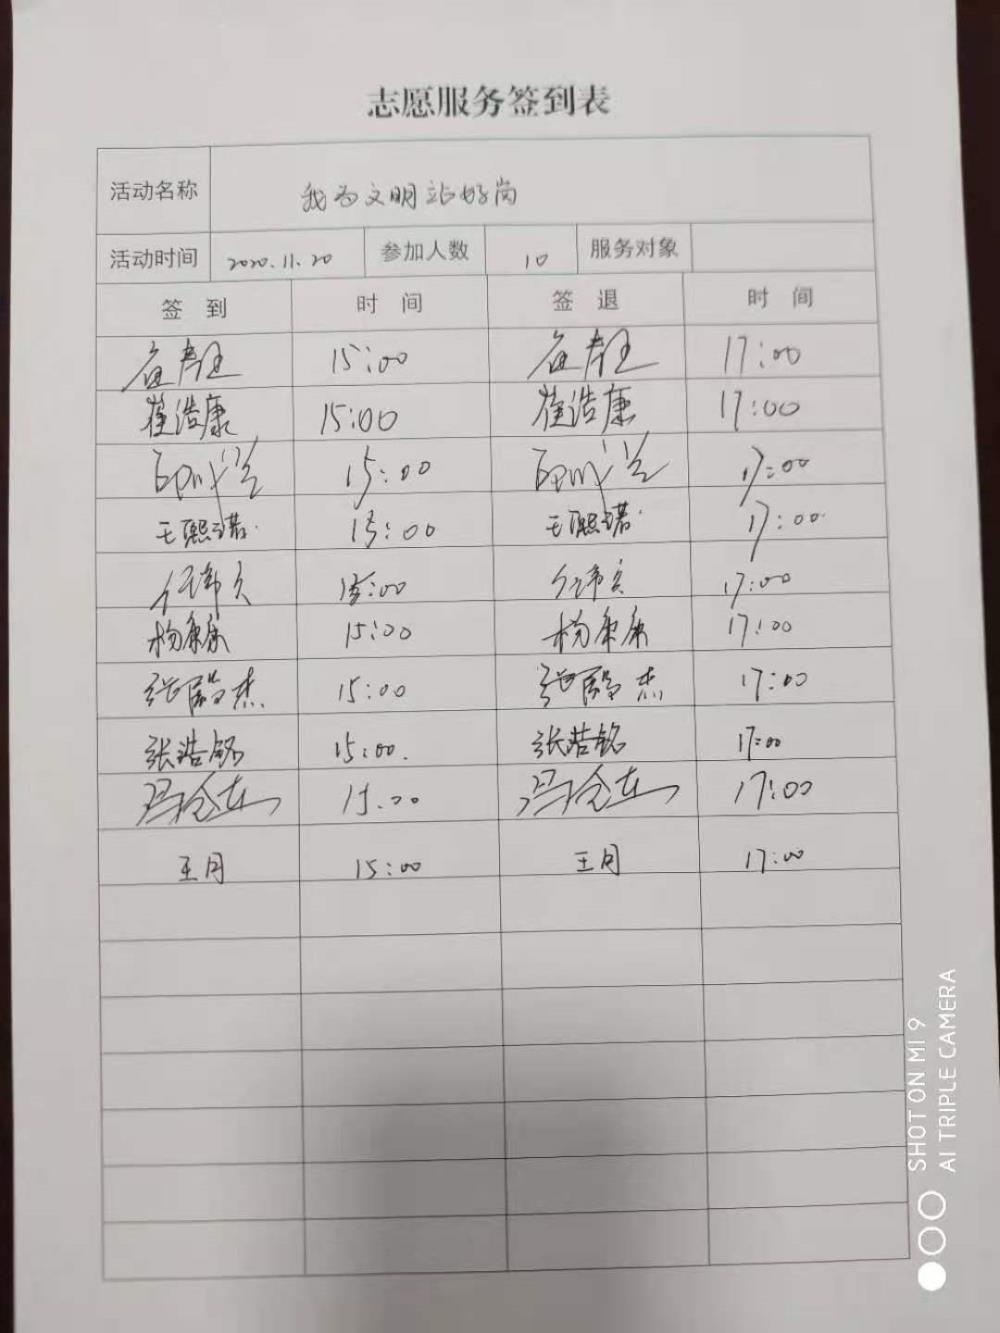 志愿服务签到表
活动名称 我为文明站好岗
活动时间 2020.11.20 参加人数 10 服务对象
签 到 时 间 签 退 时 间
15:00 17:00
崔浩康 15:00 崔浩康 17:00
15:00 17:00
王熙诺 15:00 王熙诺 17:00
15:00 17:00
杨康康 15:00 杨康康 17:00
张 杰 15:00 张 杰 17:00
张浩铭 15:00. 张浩铭 17:00
冯 15.00 冯 17:00
王月 15:00 王月 17:00
SHOT ON MI 9
AI TRIPLE CAMERA